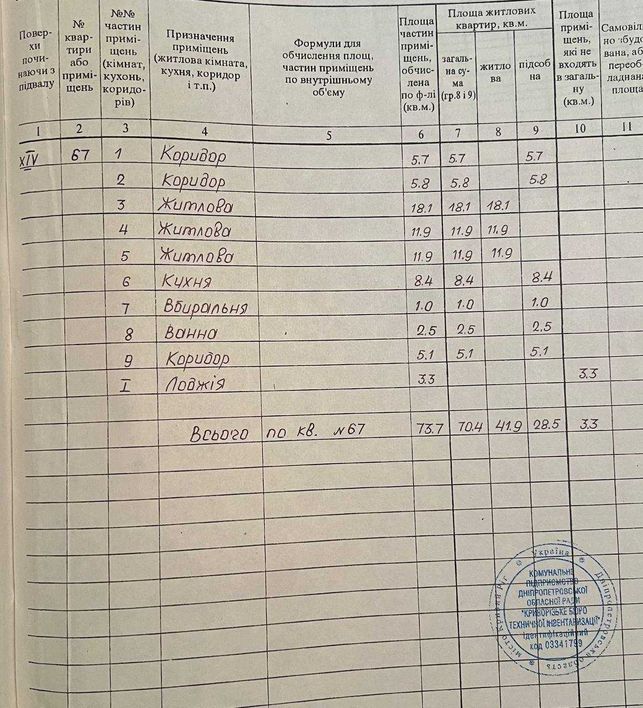 Повер-
хи
почи-
наючи з
підвалу
№
квар-
тири
або
примі-
щень
№№
частин
примі-
щень
(кімнат,
кухонь,
коридо-
рів)
Призначення
приміщень
(житлова кімната,
кухня, коридор
і т.п.)
Формули для
обчислення площ,
частин приміщень
по внутрішньому
об'єму
Площа
частин
примі-
щень,
обчис-
лена
по ф-лі
(кв.м.)
Площа житлових
квартир, кв.м.
загаль-
на су-
ма
(гр.8 і 9)
житло
ва
підсоб
на
Площа
примі-
щень
які не
входять
в загаль-
ну
(кв.м.)
Самовіл
но збудо
вана, або
переоб
ладнана
площа
1 2 3 4 5 6 7 8 9 10 11
XIV 67 1 Коридор 5.7 5.7 5.7
2 Коридор 5.8 5.8 5.8
3 Житлова 18.1 18.1 18.1
4 Житлова 11.9 11.9 11.9
5 Житлова 11.9 11.9 11.9
6 Кухня 8.4 8.4 8.4
7 Вбиральня 1.0 1.0 1.0
8 Ванна 2.5 2.5 2.5
9 Коридор 5.1 5.1 5.1
I Лоджія 3.3 3.3
Всього по кв. №67 73.7 70.4 41.9 28.5 3.3
Україна
Дніпропетровська область
місто Кривий Ріг
КОМУНАЛЬНЕ
ПІДПРИЄМСТВО
ДНІПРОПЕТРОВСЬКОЇ
ОБЛАСНОЇ РАДИ
"КРИВОРІЗЬКЕ БЮРО
ТЕХНІЧНОЇ ІНВЕНТАРИЗАЦІЇ"
Ідентифікаційний
код 03341799